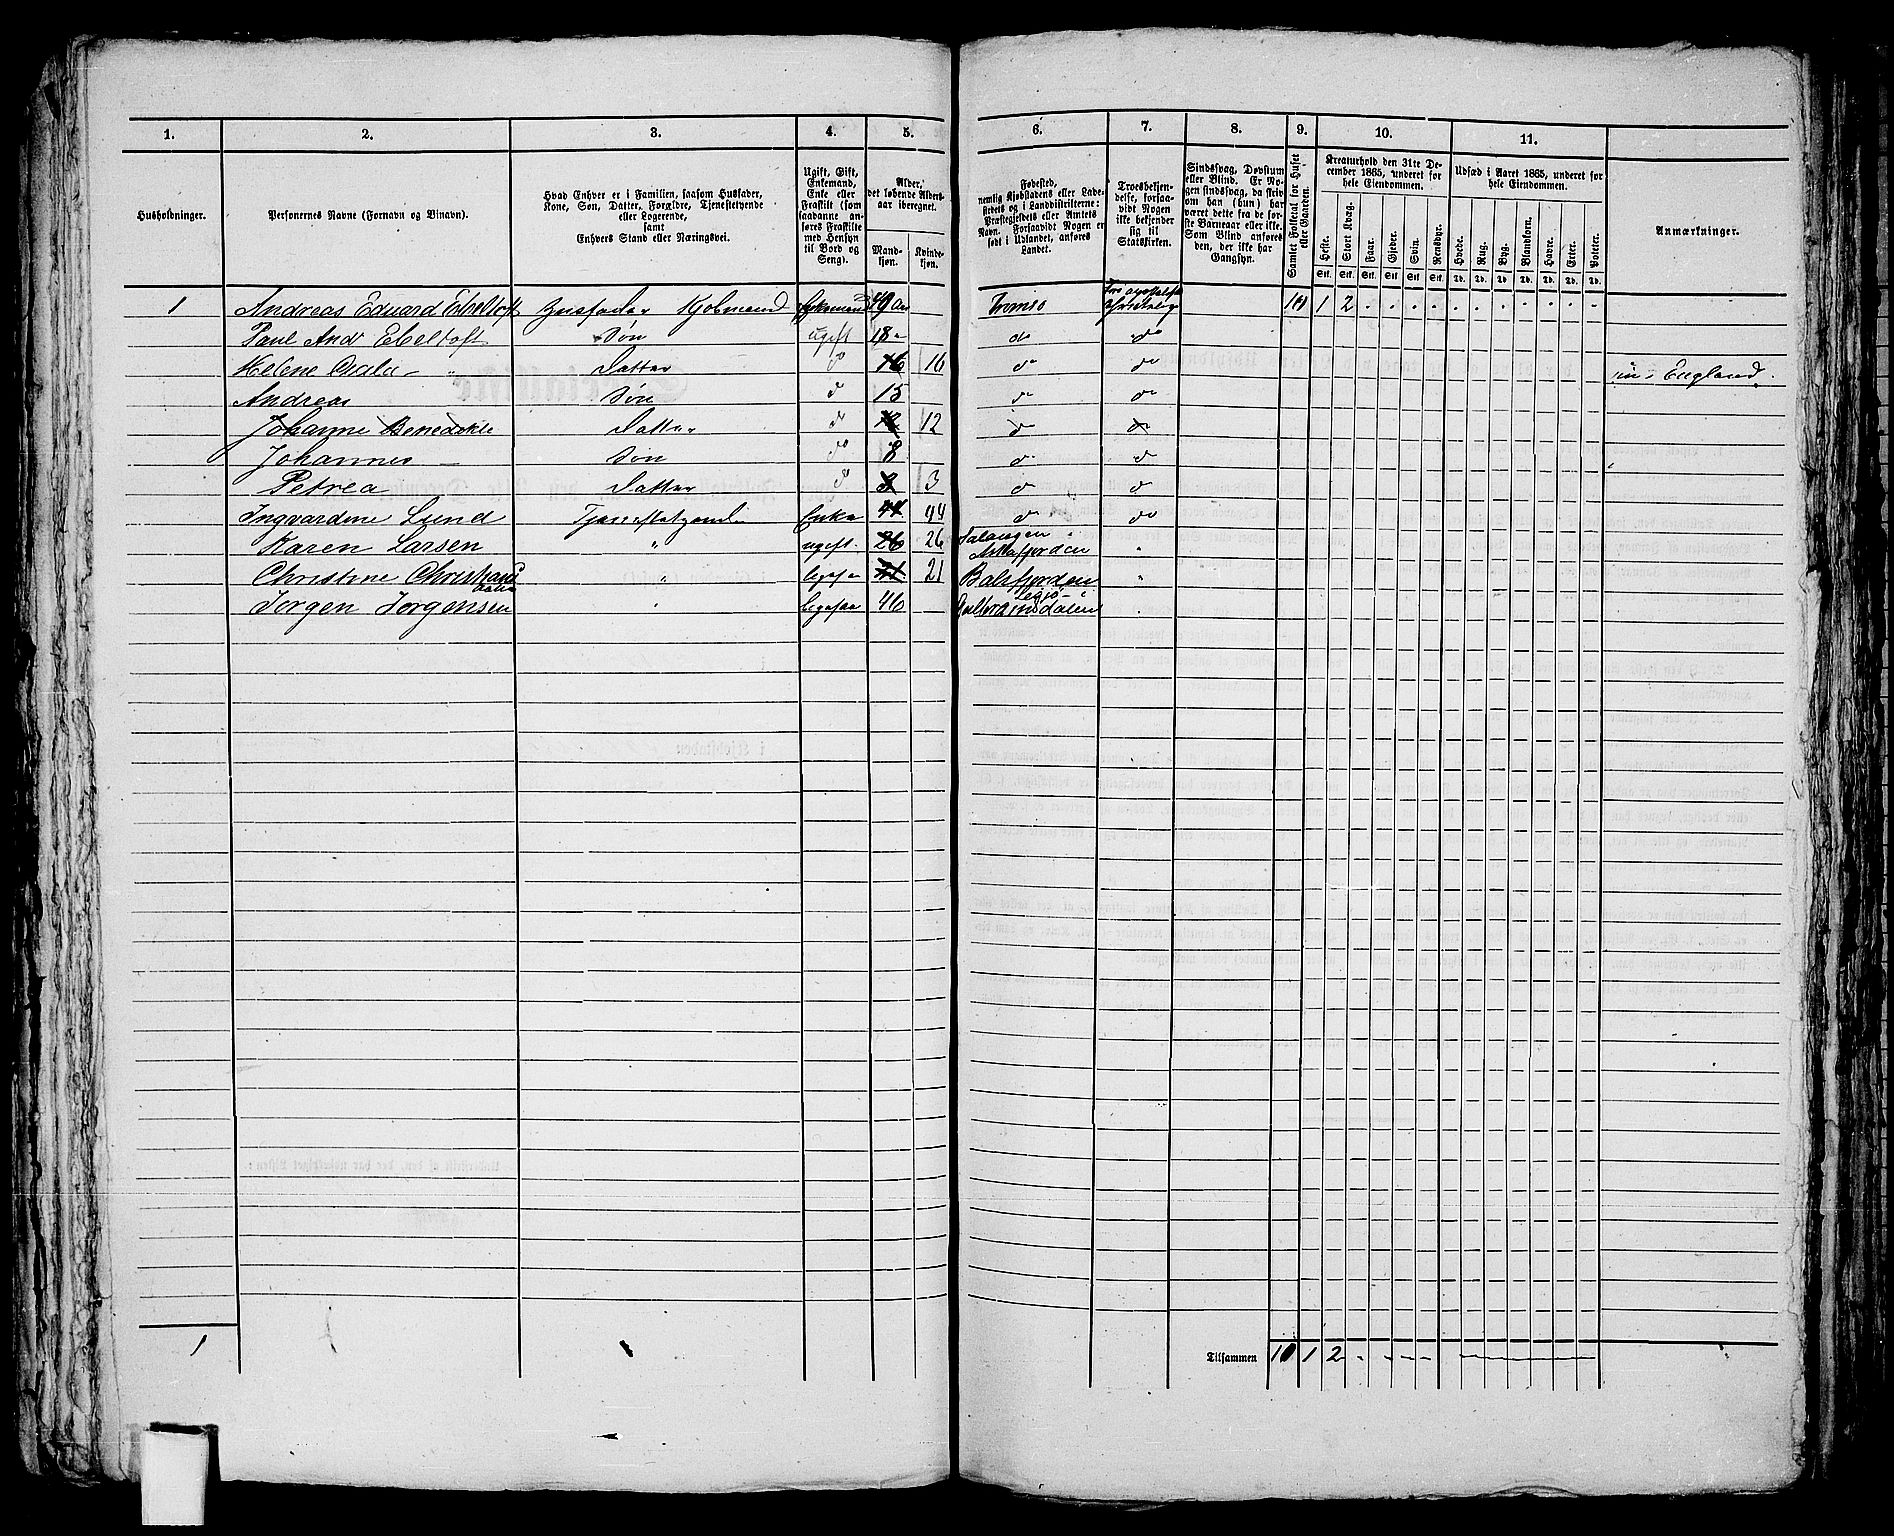 1. 2. 3. 4. 5. 6. 7. 8. 9. 10. 11.
Husholdninger.
Personernes Navne (Fornavn og Binavn).
Hvad Enhver er i Familien, saasom Husfader,
Kone, Søn, Datter, Forældre, Tjenestetyende
eller Logerende,
samt
Enhvers Stand eller Næringsvei.
Ugift, Gift,
Enkemand,
Enke eller
Fraskilt (som
saadanne an-
føres Fraskilte
med Hensyn
til Bord og
Seng).
Alder,
det løbende Alders-
aar iberegnet.
Mand-
kjøn.
Kvinde-
kjøn.
Fødested,
nemlig Kjøbstadens eller Lade-
stedets og i Landdistrikterne:
Præstegjeldets eller Amtets
Navn. Forsaavidt Nogen er
født i Udlandet, anføres
Landet.
Troesbekjen-
delse, forsaa-
vidt Nogen
ikke bekjender
sig til
Statskirken.
Sindssvag, Døvstum
eller Blind. Er No-
gen sindssvag, da skriv
om han (hun) har
været dette fra de før-
ste Barneaar eller ikke.
Som Blind anføres
den, der ikke har
Gangsyn.
Samlet Folketal for Huset
eller Gaarden.
Kreaturhold den 31te De-
cember 1865, underet for
hele Eiendommen.
Heste. Stort Kvæg. Faar. Gjeder. Svin. Rensdyr.
Stk. Stk. Stk. Stk. Stk. Stk.
Udsæd i Aaret 1865, underet for
hele Eiendommen.
Hvede. Rug. Byg. Blandkorn. Havre. Erter. Poteter.
Td. Td. Td. Td. Td. Td. Td.
Anmærkninger.
1 Andreas Eduard Ebeltoft Husfader Kjøbmand Enkemand 49 Aar Tromsø 10 1 2
Paul And Ebeltoft Søn ugift 18 do do
Helene " Datter d 16 16 do do i England.
Andreas Søn d 15 do do
Johanne Benedikte Datter d 12 12 do do
Johannes Søn do 8 do do
Petrea Datter d 3 3 d d
Ingvardine Lund Tjenestetyende Enke 44 44 d do
Karen Larsen " ugift 26 26 Salangen i
Astafjorden "
Christine " 21 21 Balsfjorden "
Jørgen Jørgensen " 46 Gulbransdalen "
1
Tilsammen 10 1 2